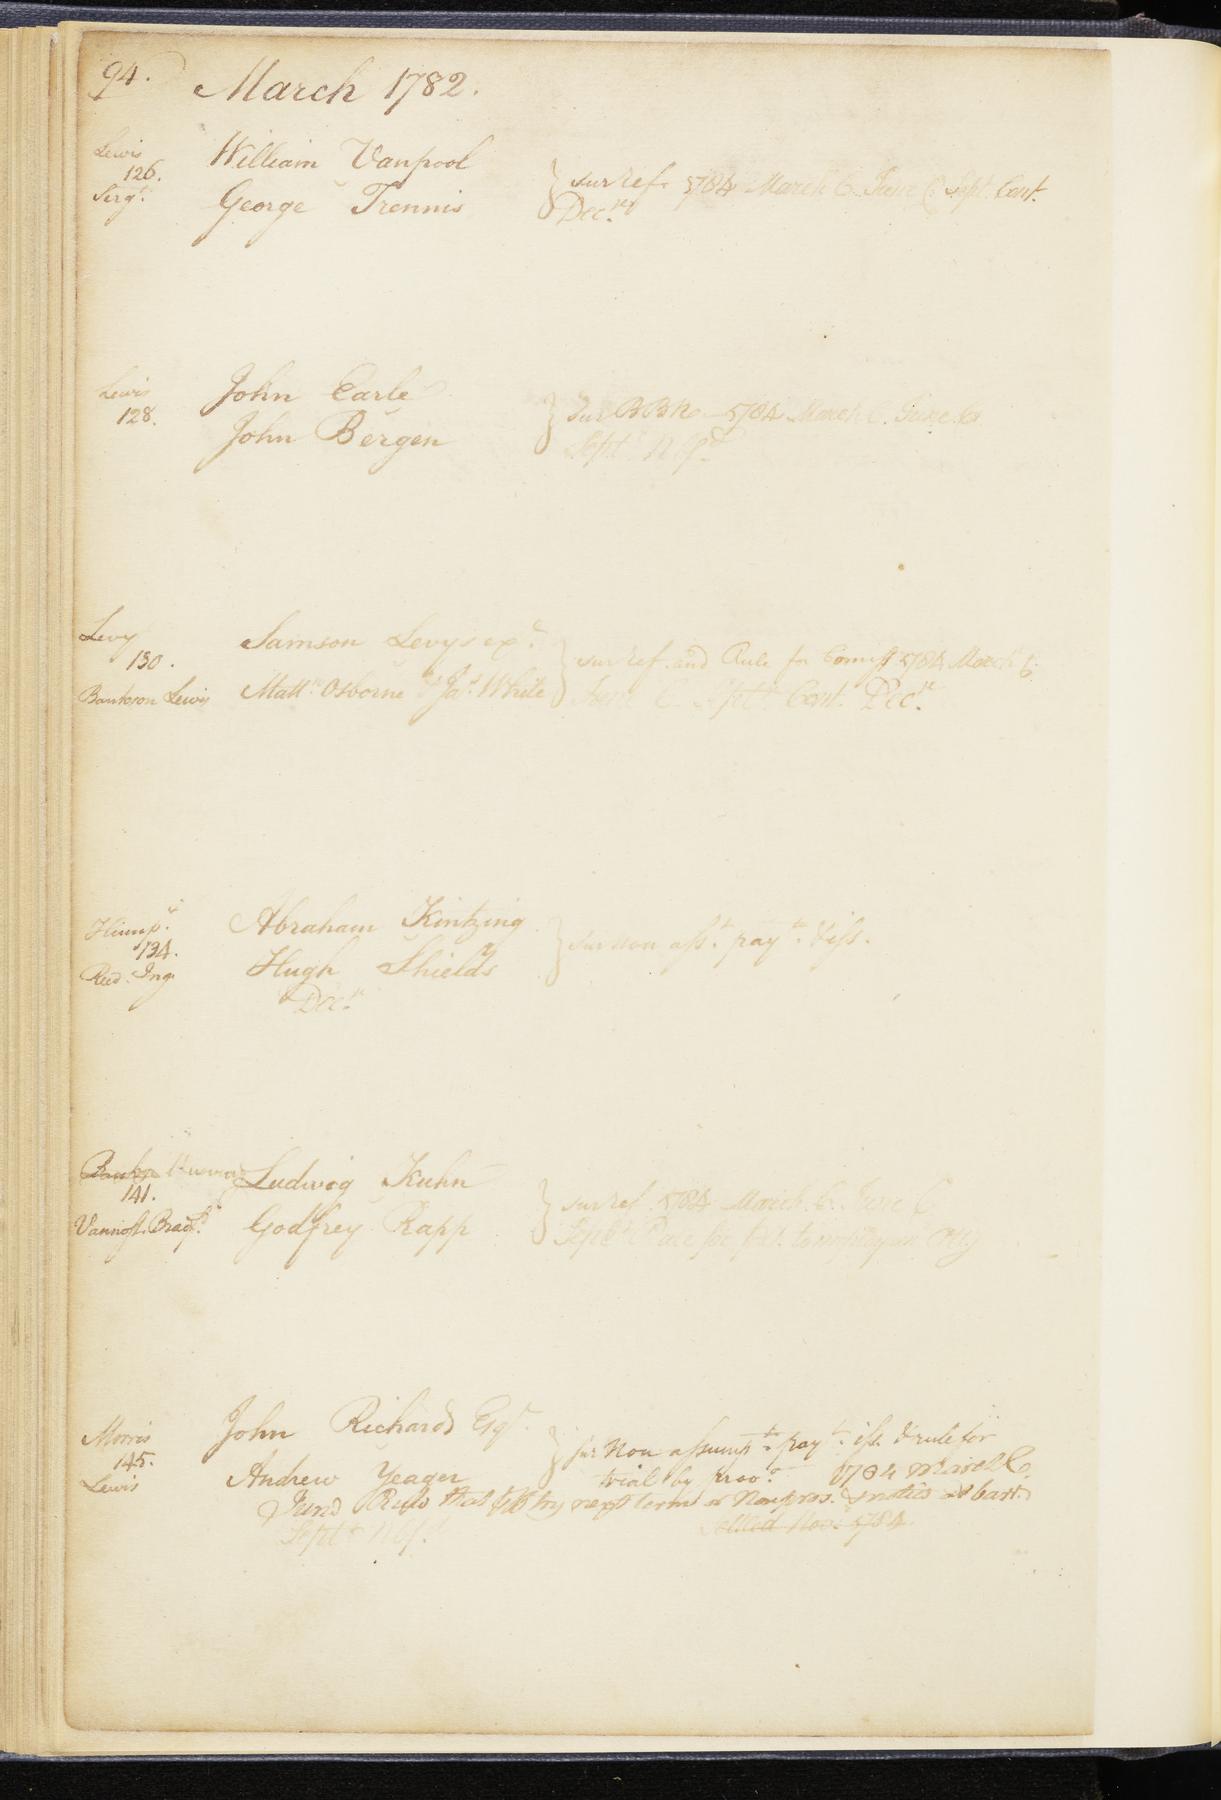 94. March 1782.
Lewis
126.
Serg.t
William Vanpool
George Trennis
sur ref. 1784 March C. June C Sept. Cont.
Dec.r
Lewis
128.
John Earle
John Bergen
Sur 1784 March C. June C.
Sept.r
Levy
130.
Bankson Lewis
Samson Levy's ex.r
Matt.w Osborne & Ja.s White
sur ref. and Rule for Comiss 1784 March C.
June C Sept.r Cont. Dec.r
134.
Reed. Ing.
Abraham Kintzing
Hugh Shields
Dec.r
sur non ass.t pay.t & iss.
141.
Vannost. Bradf.d
Ludwig Kuhn
Godfrey Rapp
sur ref. 1784 March C. June C
Sept.r Rule for
Morris
145.
Lewis
John Richards Esq.r
Andrew Yeager
sur Non assump.t pay.t iss. & rule for
trial by proo.o 1784 March C.
June Rule that try next term or Nonpros. & notice at barr.
Sept.r
settled Nov.r 1784